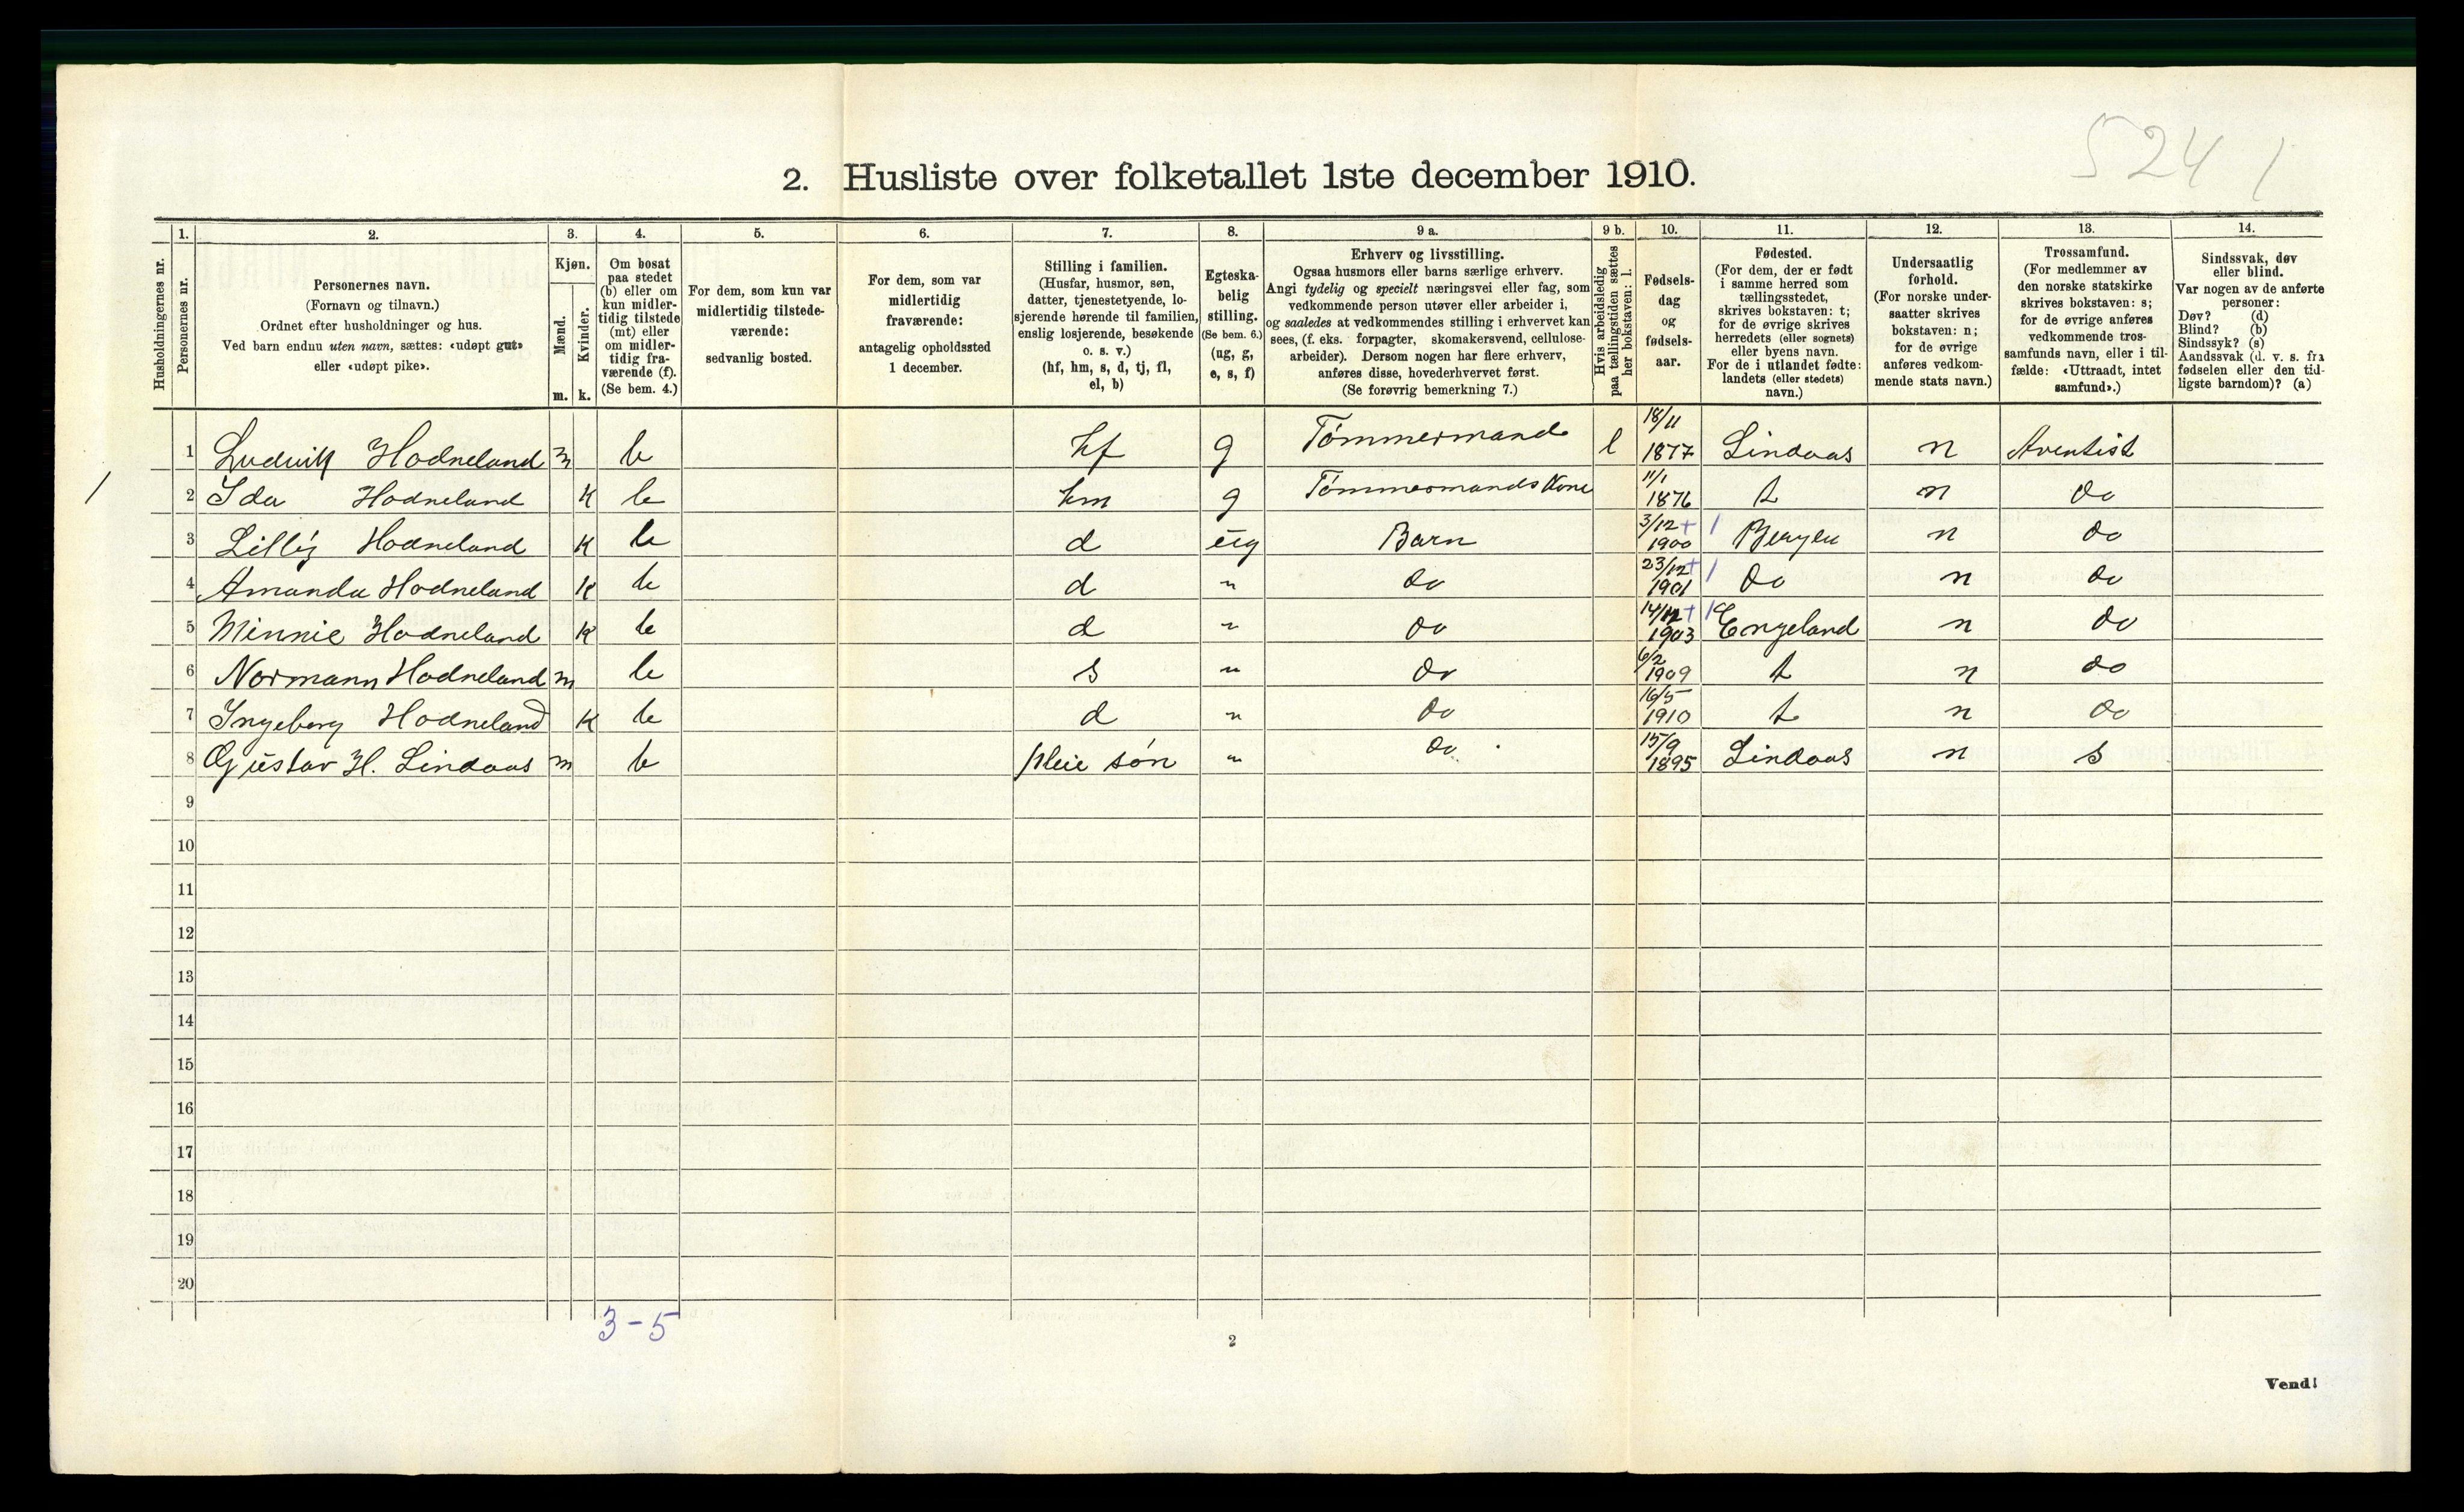 524 1
2. Husliste over folketallet 1ste december 1910.
Husholdningernes nr.
1.
Personernes nr.
2.
Personernes navn.
(Fornavn og tilnavn.)
Ordnet efter husholdninger og hus.
Ved barn endnu uten navn, sættes: «udøpt gut»
eller «udøpt pike».
3.
Kjøn.
Mænd.
Kvinder.
m. k.
4.
Om bosat
paa stedet
(b) eller om
kun midler-
tidig tilstede
(mt) eller
om midler-
tidig fra-
værende (f).
(Se bem. 4.)
5.
For dem, som kun var
midlertidig tilstede-
værende:
sedvanlig bosted.
6.
For dem, som var
midlertidig
fraværende:
antagelig opholdssted
1 december.
7.
Stilling i familien.
(Husfar, husmor, søn,
datter, tjenestetyende, lo-
sjerende hørende til familien,
enslig losjerende, besøkende
o. s. v.)
(hf, hm, s, d, tj, fl,
el, b)
8.
Egteska-
belig
stilling.
(Se bem. 6.)
(ug, g,
e, s, f)
9 a.
Erhverv og livsstilling.
Ogsaa husmors eller barns særlige erhverv.
Angi tydelig og specielt næringsvei eller fag, som
vedkommende person utøver eller arbeider i,
og saaledes at vedkommendes stilling i erhvervet kan
sees, (f. eks. forpagter, skomakersvend, cellulose-
arbeider). Dersom nogen har flere erhverv,
anføres disse, hovederhvervet først.
(Se forøvrig bemerkning 7.)
9 b.
Hvis arbeidsledig
paa tællingstiden sættes
her bokstaven: l.
10.
Fødsels-
dag
og
fødsels-
aar.
11.
Fødested.
(For dem, der er født
i samme herred som
tællingsstedet,
skrives bokstaven: t;
for de øvrige skrives
herredets (eller sognets)
eller byens navn.
For de i utlandet fødte:
landets (eller stedets)
navn.)
12.
Undersaatlig
forhold.
(For norske under-
saatter skrives
bokstaven: n;
for de øvrige
anføres vedkom-
mende stats navn.)
13.
Trossamfund.
(For medlemmer av
den norske statskirke
skrives bokstaven: s;
for de øvrige anføres
vedkommende tros-
samfunds navn, eller i til-
fælde: «Uttraadt, intet
samfund».)
14.
Sindssvak, døv
eller blind.
Var nogen av de anførte
personer:
Døv? (d)
Blind? (b)
Sindssyk? (s)
Aandssvak (d. v. s. fra
fødselen eller den tid-
ligste barndom)? (a)
1 Ludvik Hodneland m b hf g Tømmermand l 18/11 1877 Lindaas n Aventist
1
2 Ida Hodneland K b hm g Tømmermands Kone 11/1 1876 t n do
3 Lilly Hodneland K b d ug Barn 3/12 + 1900 1 Bergen n do
4 Amanda Hodneland K b d " do 23/12 + 1901 1 do n do
5 Minnie Hodneland K b d " do 14/12 + 1903 1 Engeland n do
6 Normann Hodneland m b s " do 6/2 1909 t n do
7 Ingeborg Hodneland K b d " do 16/5 1910 t n do
8 Gustav H. Lindaas m b pleie søn " do 15/9 1895 Lindaas n s
9
10
11
12
13
14
15
16
17
18
19
20
3-5
2
Vend!